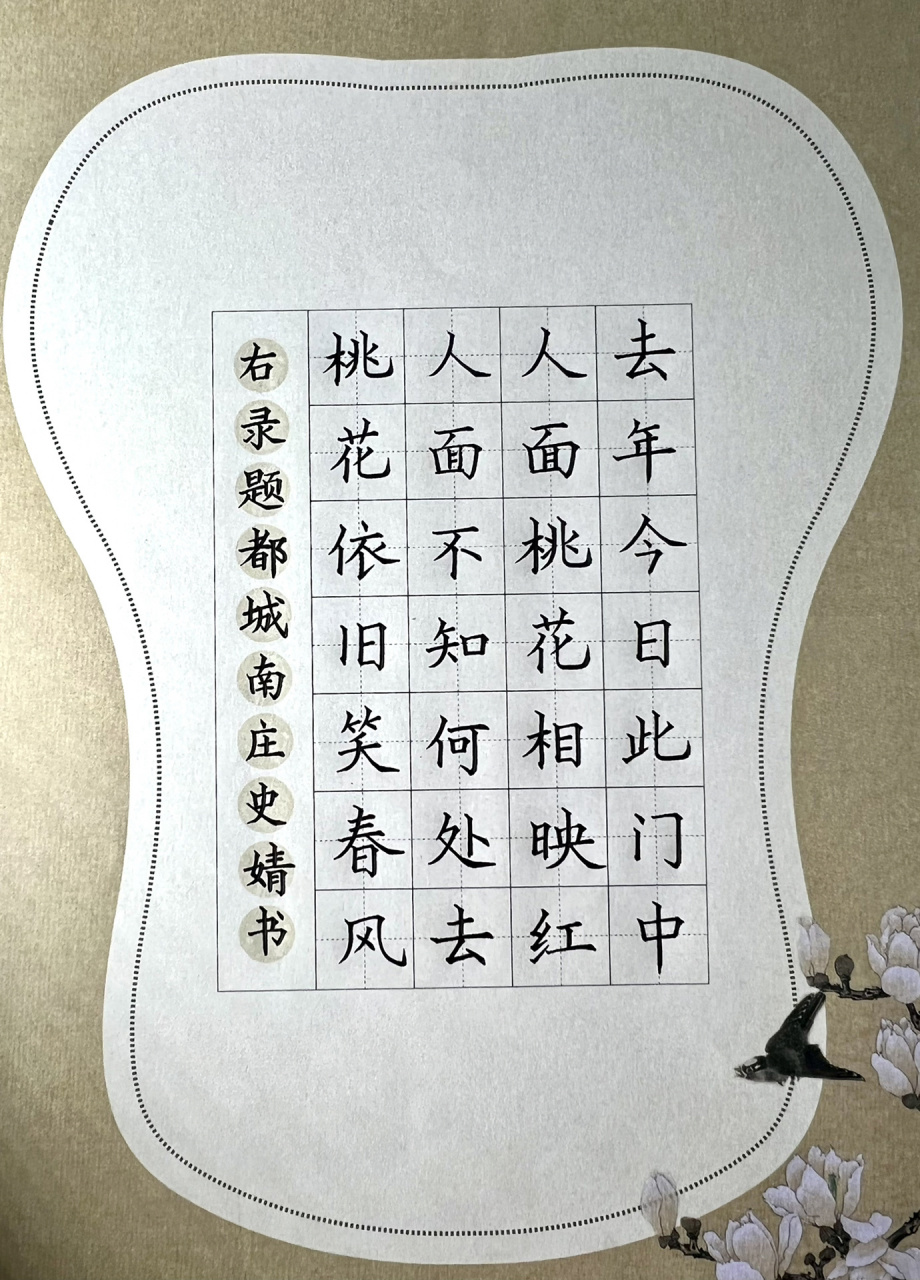 去年今日此门中
人面桃花相映红
人面不知何处去
桃花依旧笑春风
右录题都城南庄史婧书